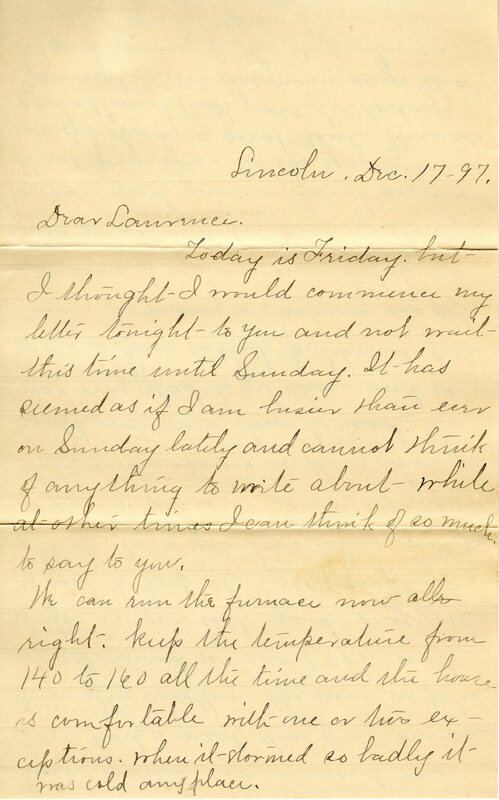 Lincoln. Dec. 17-97.
Dear Lawrence.
Today is Friday. but
I thought I would commence my
letter tonight to you and not wait
this time until Sunday. It has
seemed as if I am busier than ever
on Sunday lately and cannot think
of anything to write about while
at other times I can think of so much
to say to you.
We can run the furnace now all
right. keep the temperature from
140 to 160 all the time and the house
is comfortable with one or two ex-
ceptions. when it stormed so badly it
was cold anyplace.